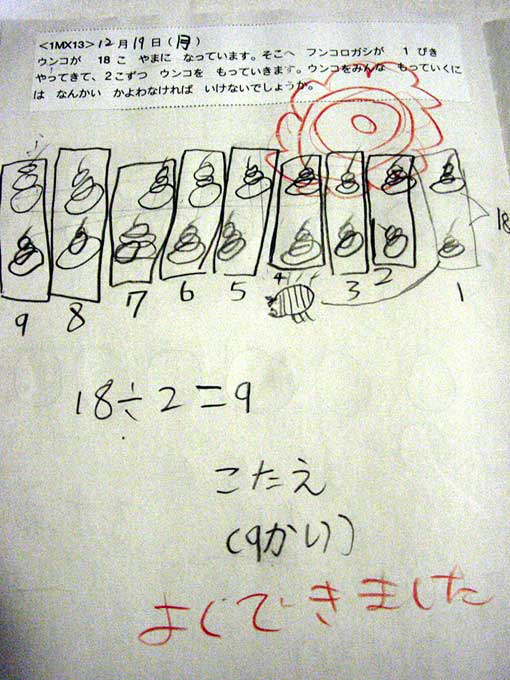 <1MX13>12月19日(月)
ウンコが 18こ やまに なっています。そこへ フンコロガシが 1ぴき
やってきて、2こずつ ウンコを もっていきます。ウンコをみんな もっていくに
は なんかい かよわなければ いけないでしょうか。
18
9 8 7 6 5 4 3 2 1
18÷2=9
こたえ
(9かい)
よくできました